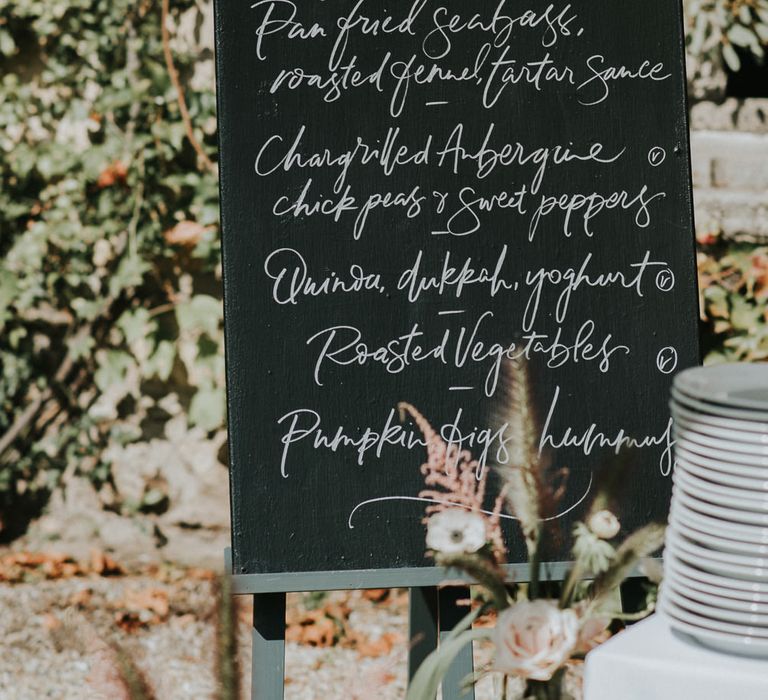 Pan fried seabass,
roasted fennel, tartar sauce
Chargrilled Aubergine (v)
chick peas & sweet peppers
Quinoa, dukkah, yoghurt (v)
Roasted Vegetables (v)
Pumpkin figs hummus